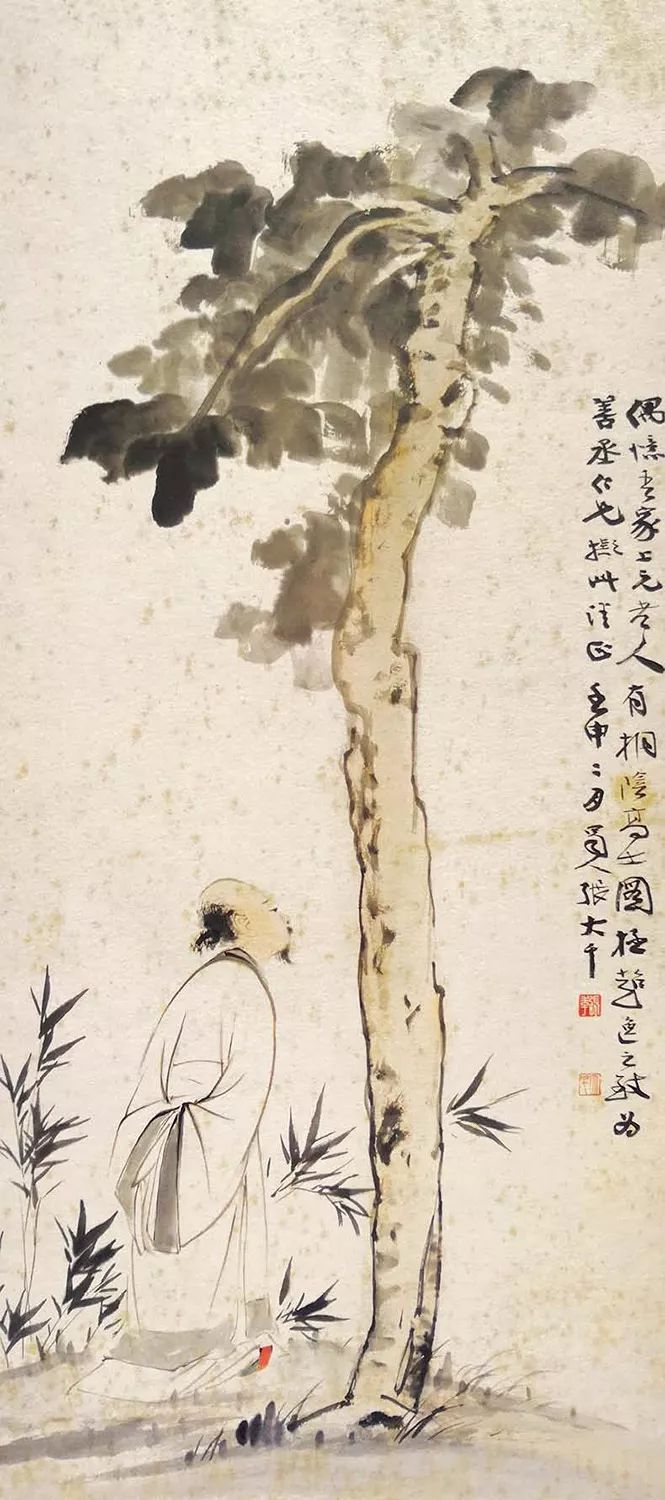 偶憶吾家上元老人有桐陰高士圖極超逸之致為
善丞仁兄擬此請正 壬申二月蜀人張大千